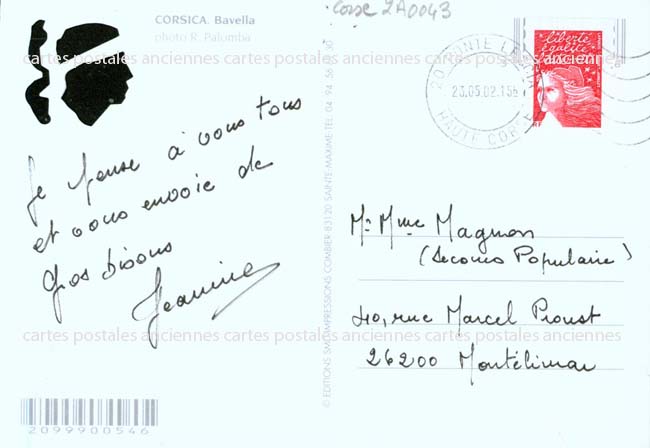 CORSICA. Bavella
photo R. Palomba
Corse 2A0043
liberté
égalité
fraternité
HAUTE CORSE
cartes postales anciennes cartes postales anciennes cartes postales anciennes
Je pense à vous tous
et vous envoie de
gros bisous
Jeannine
© EDITIONS SMD IMPRESSIONS COMBIER 83120 SAINTE MAXIME-TEL. 04 94 56 30
Mr Mme Magnon
(Secours Populaire)
40, rue Marcel Proust
26200 Montélimar
cartes postales anciennes cartes postales anciennes cartes postales anciennes
2099900546